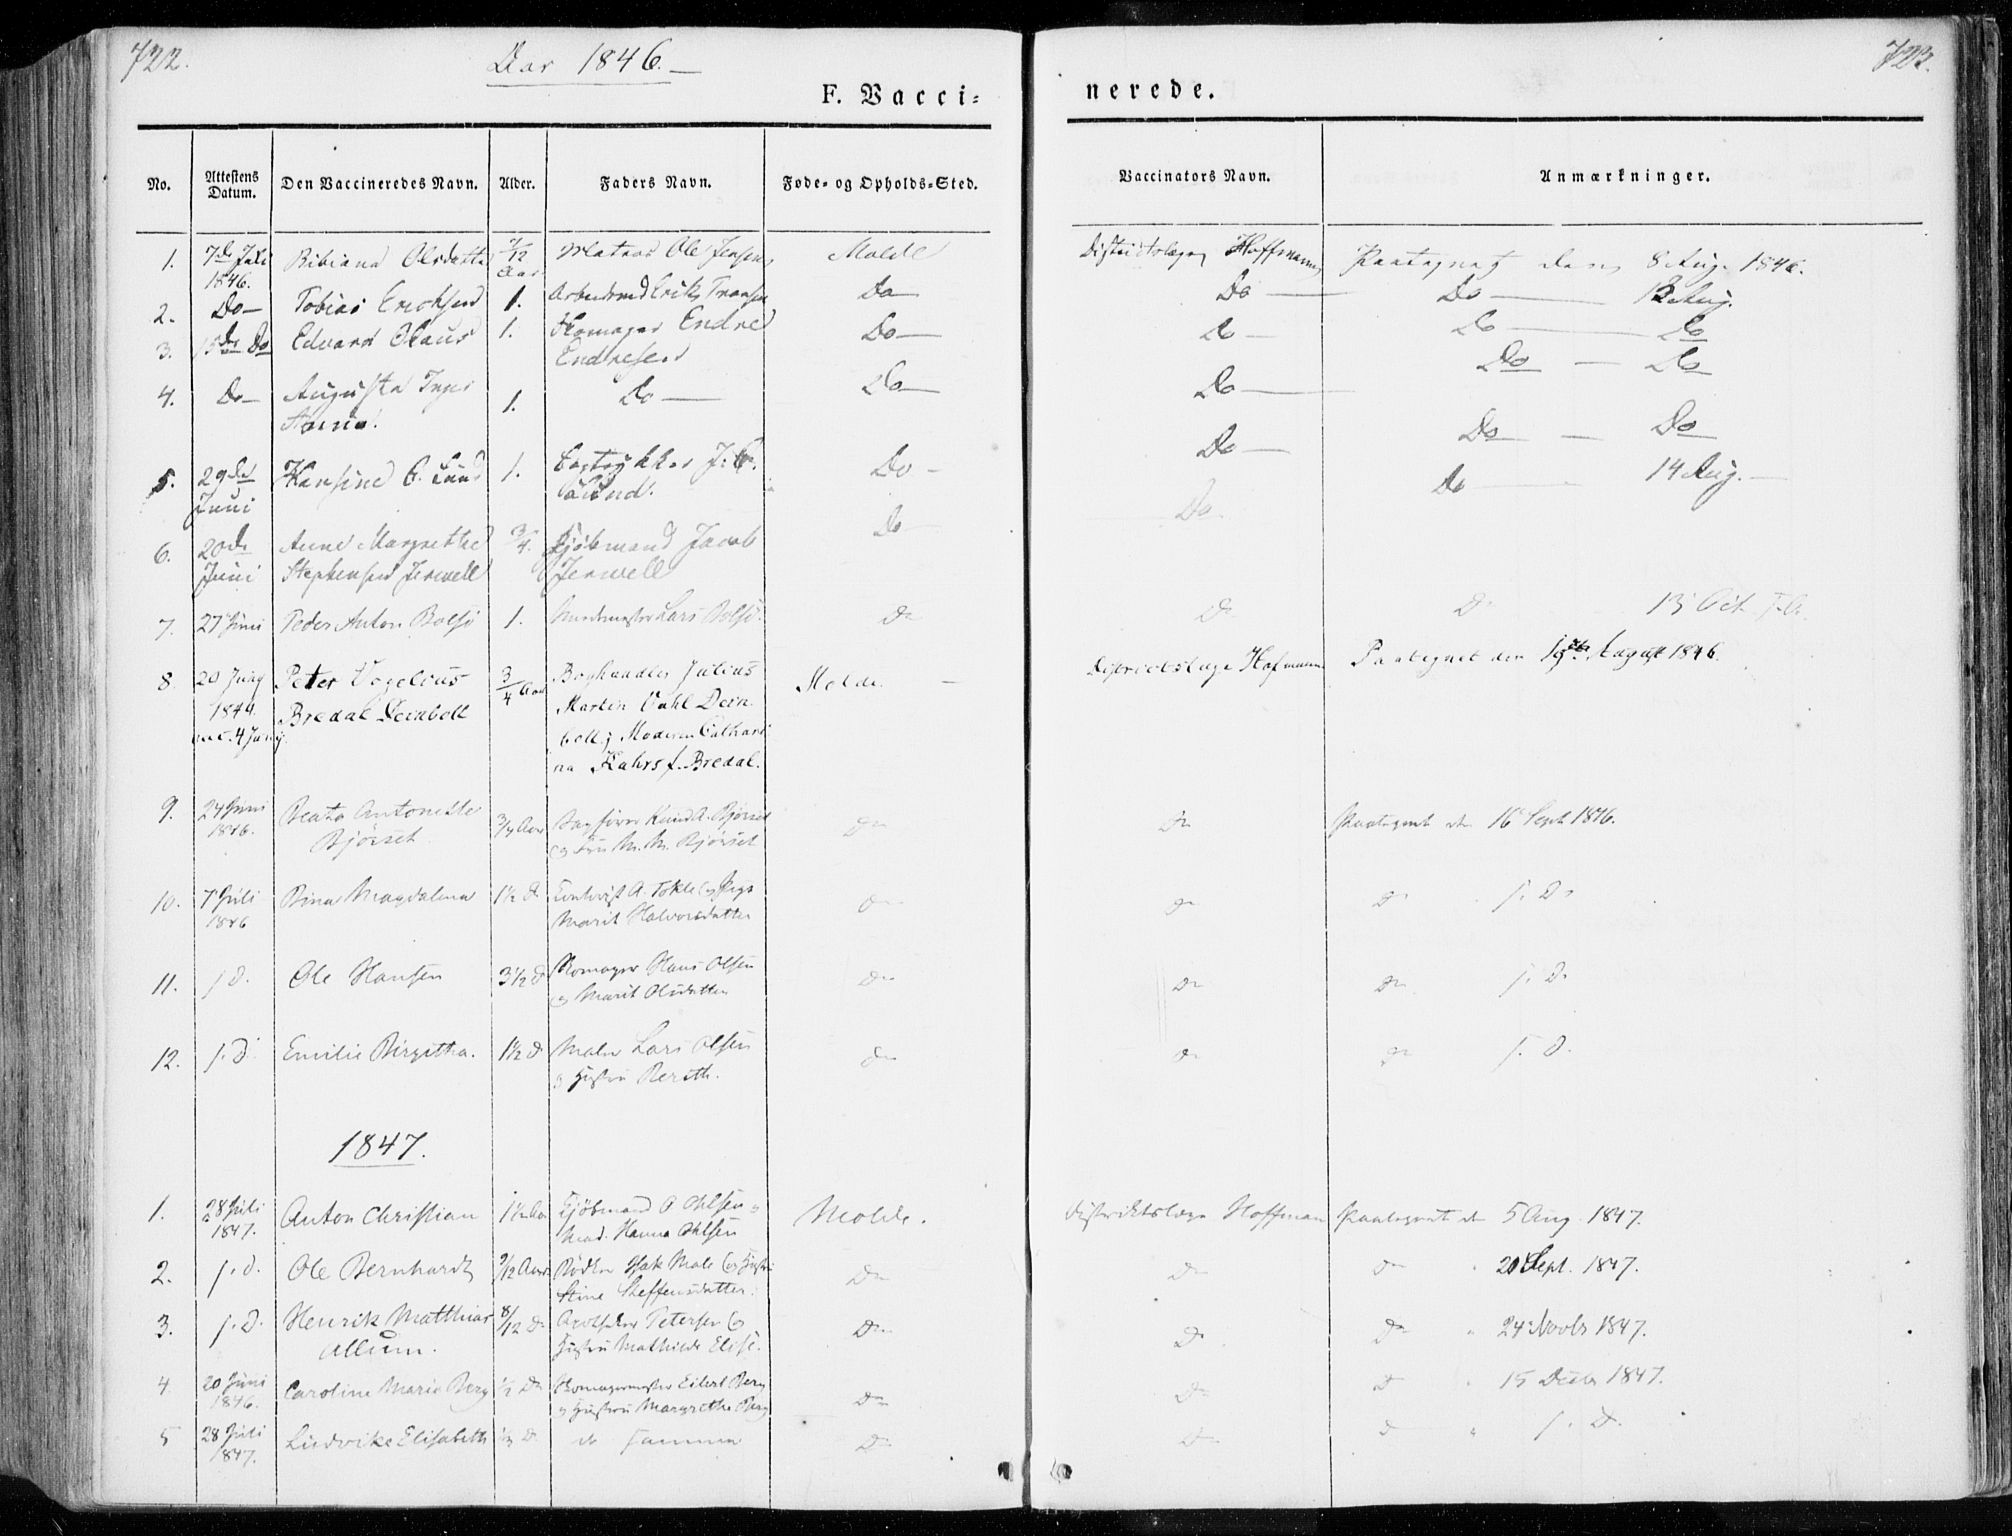 722.
Aar 1846.
723.
F. Vacci=
nerede.
No.
Attestens Datum.
Den Vaccineredes Navn.
Alder.
Faders Navn.
Føde- og Opholds-Sted.
Vaccinators Navn.
Anmærkninger.
1. 7de Juli 1846. Bibiana Olsdatter 7/12 Aar Matros Ole Jensen Molde Districtslæge Hoffmann Paategnet den 8 Aug. 1846.
2. Do Tobias Erichsen 1. Arbeidsmd Erik Do Do Do 12 Aug.
3. 15de Do Edvard Olaus 1. Skomager Endre Endresen Do Do Do Do
4. Do Augusta Inger Anna. 1. Do Do Do Do Do
5. 29de Juni Hansine C. Lund 1. J. C. Lund. Do Do Do Do
6. 20de Juni Anne Margrethe Stephensen Jerwell 3/4. Kjøbmand Jacob Jerwell Do Do Do 14 Aug.
7. 27 Juni Peder Anton Bolsø 1. Lars Bolsø. Do Do Do 13 Oct.
8 20 Juny 1844. 4 Juny. Peter Vogelius Bredal Deinboll 3/4 Aar Boghandler Julius Martin Vahl Deinboll; Moderen Catharina Kahrs f. Bredal. Molde. Districtslæge Hofmann Paategnet den 19de August 1846.
9. 24 Juni 1846. Beata Antonette Bjørset 3/4 Aar Sagfører Knud A. Bjørset og Fru M. M. Bjørset Do Do Paategnet d 16 Sept 1846.
10. 7 Juli 1846 Rina Magdalena 1½ D A. Tokle og Marit Halvorsdatter Do Do Do s. D.
11. s D. Ole Hansen 3½ D Skomager Hans Olsen og Marit Olsdatter Do Do Do s. D.
12. s. D. Emilie Birgitha. 1½ D Maler Lars Olsen og Hustru Bereth. Do Do Do s. D.
1847.
1. 28 Juli 1847. Anton Christian 1½ Aar Kjøbmand O Ohlsen og Mad. Hanna Ohlsen Molde. Distriktslæge Hoffman Paategnet d 5 Aug. 1847.
2. s. D. Ole Bernhardt 9/12 Aar Isak Male og Hustru Stine Steffensdatter. Do Do Do 20 Sept. 1847.
3. s. D. Henrik Matthias Allum. 8/12 Do Petersen og Hustru Mathilde Elise. Do Do Do 24 Novbr 1847.
4. 20 Juni 1846. Caroline Marie Berg ½ Do Skomagermester Eilert Berg og Hustru Margrethe Berg Do Do Do 15 Decbr 1847.
5 28 Juli 1847. Ludvike Elisabeth D. de samme Do Do Do s. D.